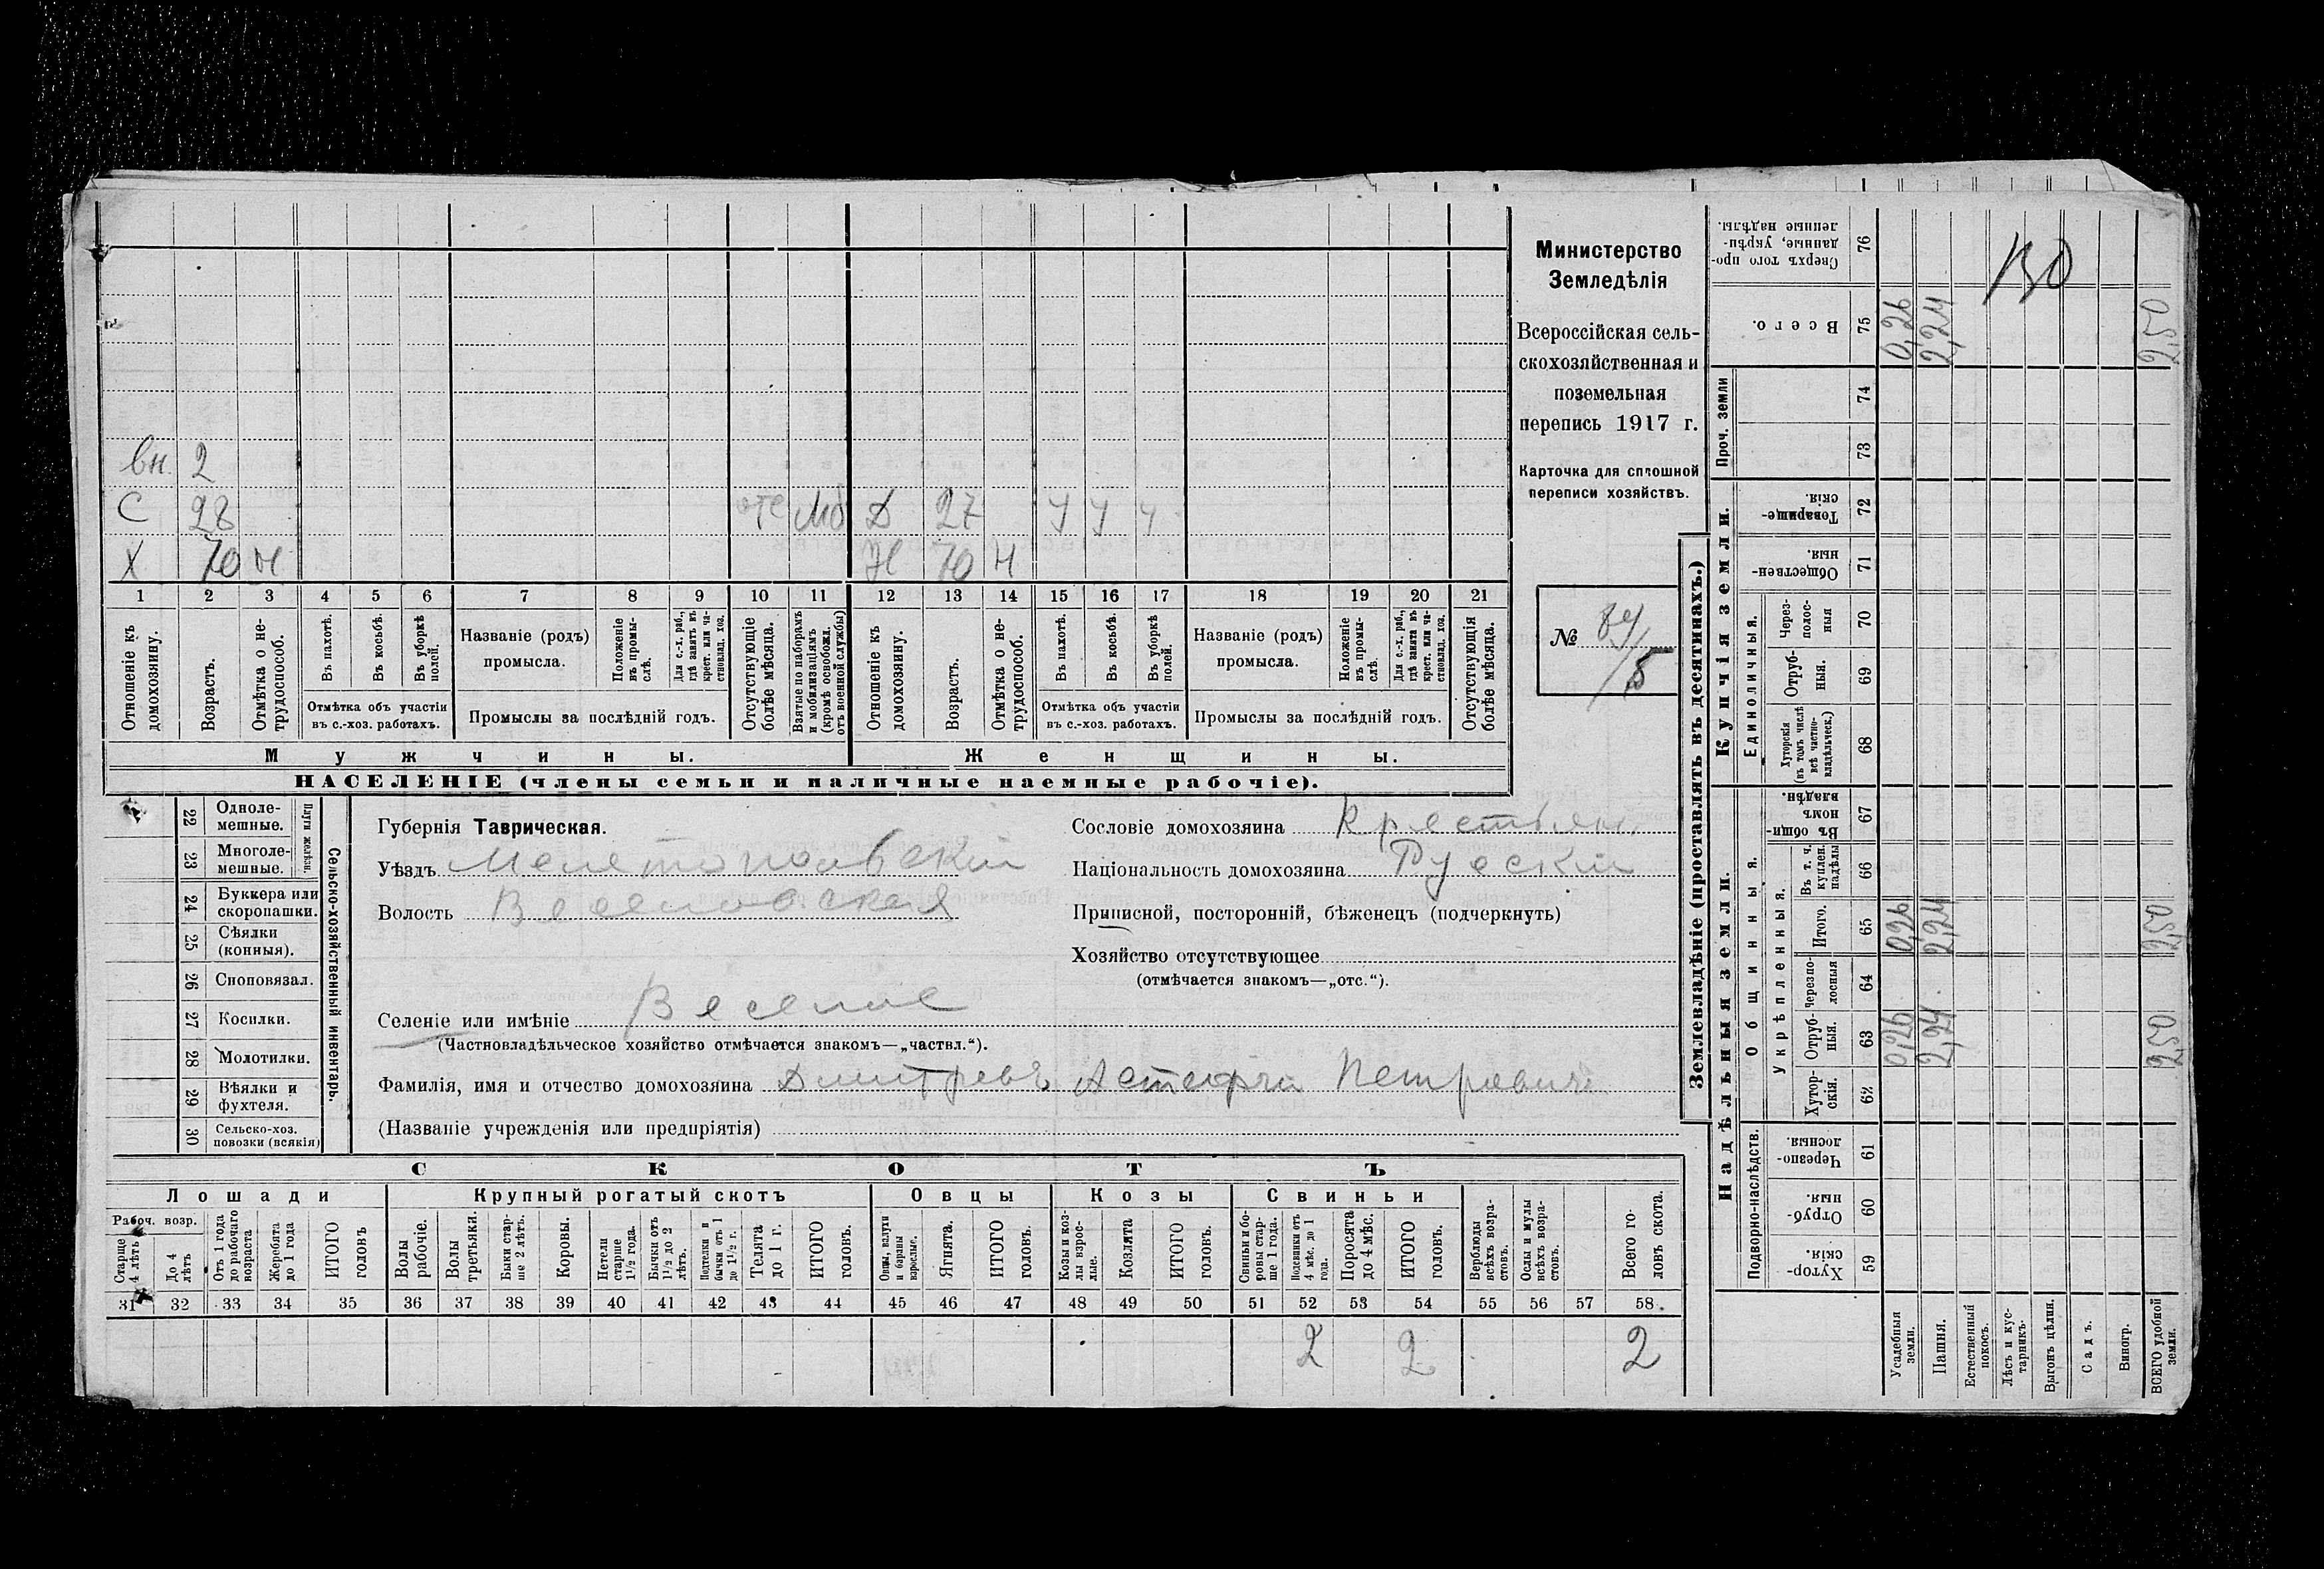 Министерство
Земледѣлія
Всероссійская сель-
скохозяйственная и
поземельная
перепись 1917 г.
Карточка для сплошной
переписи хозяйствъ.
№ 84/5
вн. 2
С 28 отс моб Д 27 У У У
Х 70 н Ж 70 н
1 2 3 4 5 6 7 8 9 10 11 12 13 14 15 16 17 18 19 20 21
Отношеніе къ домохозяину.
Возрастъ.
Отмѣтка о не-трудоспособ.
Въ пахотѣ.
Въ косьбѣ.
Въ уборкѣ полей.
Отмѣтка объ участіи
въ с.-хоз. работахъ.
Названіе (родъ)
промысла.
Положеніе въ промы-слѣ.
Для с.-х. раб., гдѣ занятъ въ крест. или ча-стновлад. хоз.
Промыслы за послѣдній годъ.
Отсутствующіе болѣе мѣсяца.
Взятые по наборамъ и мобилизаціямъ (кромѣ освобожд. отъ военной службы)
Отношеніе къ домохозяину.
Возрастъ.
Отмѣтка о не-трудоспособ.
Въ пахотѣ.
Въ косьбѣ.
Въ уборкѣ полей.
Отмѣтка объ участіи
въ с.-хоз. работахъ.
Названіе (родъ)
промысла.
Положеніе въ промы-слѣ.
Для с.-х. раб., гдѣ занята въ крест. или ча-стновлад. хоз.
Промыслы за послѣдній годъ.
Отсутствующія болѣе мѣсяца.
Мужчины. Женщины.
НАСЕЛЕНІЕ (члены семьи и наличные наемные рабочіе).
22 Одноле-мешные.
23 Многоле-мешные.
Плуги желѣзн.
24 Буккера или скоропашки.
25 Сѣялки (конныя).
26 Сноповязал.
27 Косилки.
28 Молотилки.
29 Вѣялки и фухтеля.
30 Сельско-хоз. повозки (всякія)
Сельско-хозяйственный инвентарь.
Губернія Таврическая.
Уѣздъ Мелетопольвскій
Волость Веселовская
Селеніе или имѣніе Веселое
(Частновладѣльческое хозяйство отмѣчается знакомъ—„частвл.“).
Фамилія, имя и отчество домохозяина Дмитревъ Астафій Петровичъ
(Названіе учрежденія или предпріятія)
Сословіе домохозяина Крестьян.
Національность домохозяина Рускій
Приписной, посторонній, бѣженецъ (подчеркнуть)
Хозяйство отсутствующее
(отмѣчается знакомъ—„отс.“).
СКОТЪ
Лошади Крупный рогатый скотъ Овцы Козы Свиньи
Рабоч. возр.
Старше 4 лѣтъ
До 4 лѣтъ
Отъ 1 года до рабочаго возраста
Жеребята до 1 года
ИТОГО головъ
Волы рабочіе.
Волы третьяки.
Быки стар-ше 2 лѣтъ.
Коровы.
Нетели старше 1½ года.
Бычки отъ 1½ до 2 лѣтъ.
Подтелки и бычки отъ 1 до 1½ г.
Телята до 1 г.
ИТОГО головъ.
Овцы, валухи и бараны взрослые.
Ягнята.
ИТОГО головъ.
Козы и коз-лы взрос-лые.
Козлята
ИТОГО головъ.
Свиньи и бо-ровы стар-ше 1 года.
Подсвинки отъ 4 мѣс. до 1 года.
Поросята до 4 мѣс.
ИТОГО головъ.
Верблюды всѣхъ возра-стовъ.
Ослы и мулы всѣхъ возра-стовъ.
Всего го-ловъ скота.
31 32 33 34 35 36 37 38 39 40 41 42 43 44 45 46 47 48 49 50 51 52 53 54 55 56 57 58
2 2 2
Землевладѣніе (проставлять въ десятинахъ.)
Надѣльныя земли.
Купчія земли.
Проч. земли
Подворно-наслѣдств.
Общинныя.
Укрѣпленныя.
Единоличныя.
Сверхъ того про-данные, укрѣп-ленные надѣлы. 76
Всего. 75 0,26 2,24 2,50
74
73
Товарище-скія. 72
Обществен-ныя. 71
Через-полос-ныя 70
Отруб-ныя. 69
Хуторскія (въ томъ числѣ всѣ частно-владѣльческ.) 68
Въ общин-номъ владѣн. 67
Въ т. ч. куплен. надѣлы 66
Итого. 65 0,26 2,24 2,50
Черезпо-лосныя 64
Отруб-ныя. 63 0,26 2,24 2,50
Хутор-скія. 62
Черезпо-лосныя. 61
Отруб-ныя. 60
Хутор-скія. 59
Усадебныя земли.
Пашня.
Естественный покосъ.
Лѣсъ и кус-тарникъ.
Выгонъ цѣлин.
Садъ.
Виногр.
ВСЕГО удобной земли.